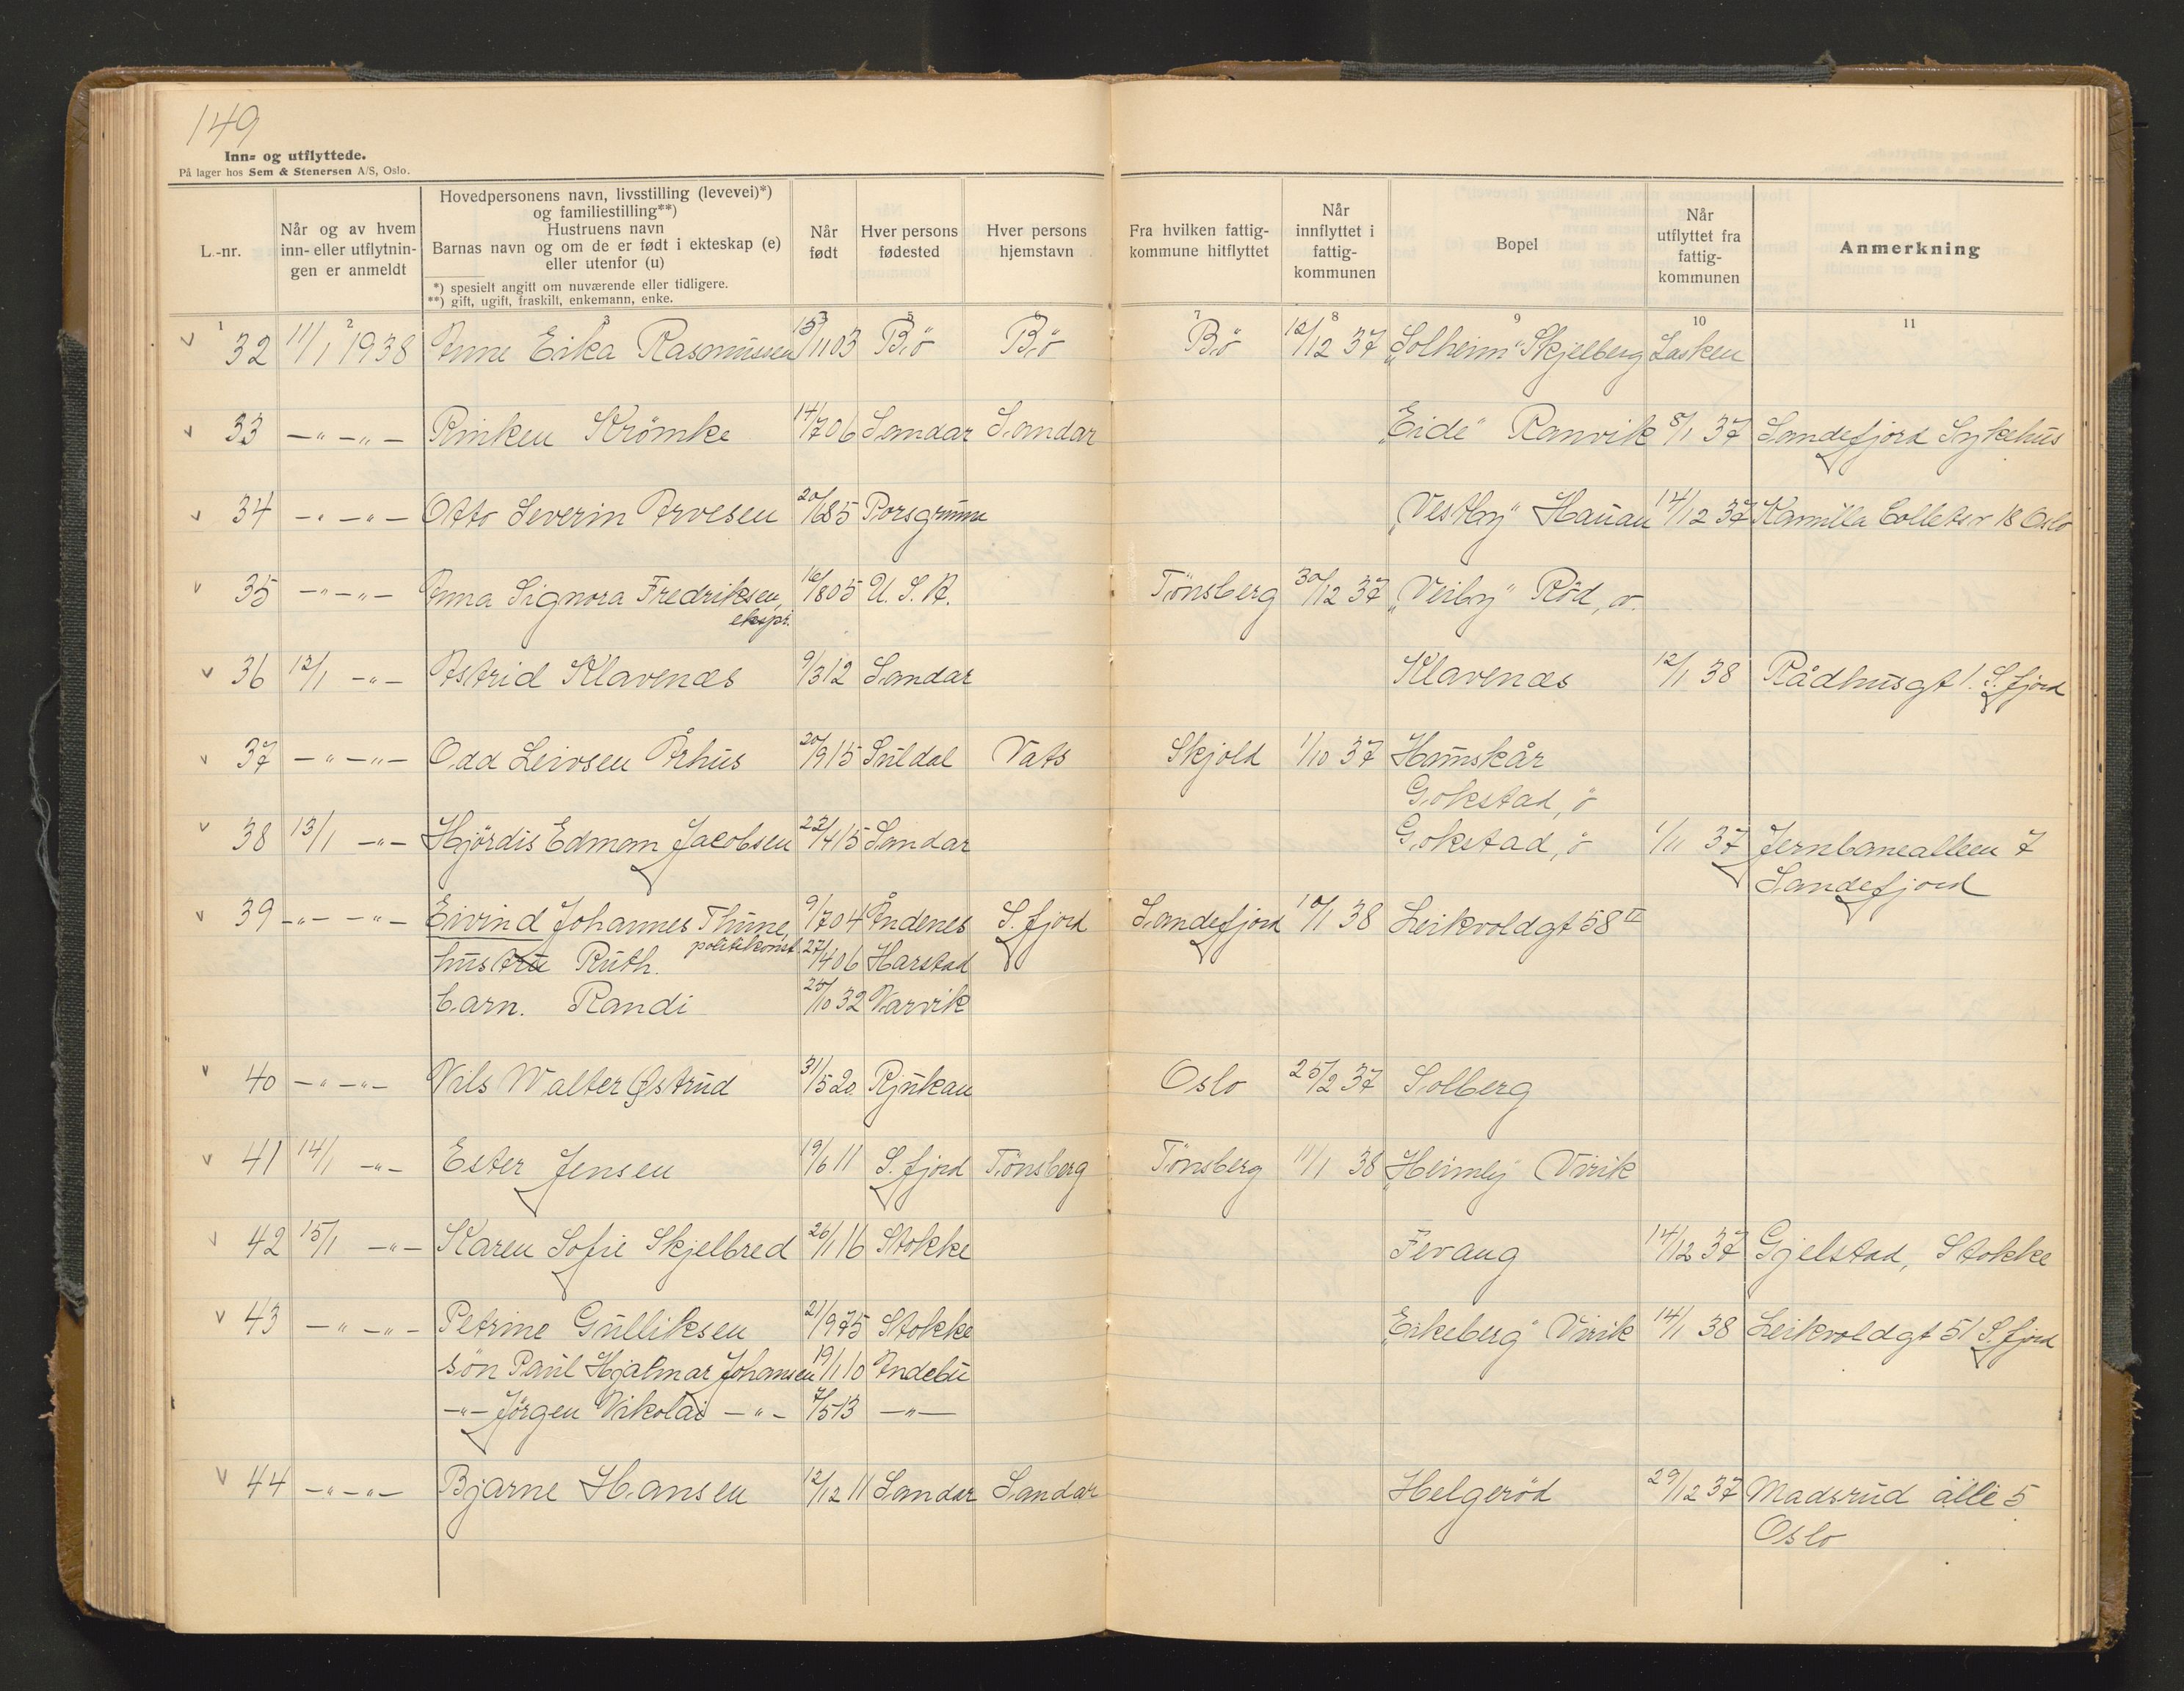 149
Inn- og utflyttede.
På lager hos Sem & Stenersen A/S, Oslo.
L.-nr.
Når og av hvem inn- eller utflytnin-gen er anmeldt
Hovedpersonens navn, livsstilling (levevei)*) og familiestilling**)
Hustruens navn
Barnas navn og om de er født i ekteskap (e) eller utenfor (u)
*) spesielt angitt om nuværende eller tidligere.
**) gift, ugift, fraskilt, enkemann, enke.
Når født
Hver persons fødested
Hver persons hjemstavn
Fra hvilken fattig-kommune hitflyttet
Når innflyttet i fattig-kommunen
Bopel
Når utflyttet fra fattig-kommunen
Anmerkning
1 2 3 5 6 7 8 9 10 11
v 32 11/1 1938 Anne Erika Rasmussen 15/1 03 Bö Bö Bö 12/12 37 "Solheim" Skjelberg Lasken
v 33 -"- -"- Rinken Krömke 14/7 06 Sandar Sandar "Eide" Ranvik 8/1 37 Sandefjord Sykehus
v 34 -"- -"- Otto Severin Arvesen 20/6 85 Porsgrunn "Vestby" Hauan 14/12 37 Kamilla Colletsv 18 Oslo
v 35 -"- -"- Anna Signora Fredriksen, 16/8 05 U. S. A. Tönsberg 30/12 37 "Veiby" Röd, v.
ekspr.
v 36 12/1 -"- Astrid Klavenæs 9/3 12 Sandar Klavenæs 12/1 38 Rådhusgt 1. S.fjord
v 37 -"- -"- Odd Leivsen Århus 20/9 15 Suldal Vats Skjold 1/10 37 Haunskår
Gokstad, ö
v 38 13/1 -"- Hjördis Edman Jacobsen 22/4 15 Sandar Gokstad, ö 1/11 37 Jernbanealleen 7
Sandefjord
v 39 -"- -"- Eivind Johannes Thune, 9/7 04 Åndenes S.fjord Sandefjord 10/1 38 Leikvoldgt 58 II
politikonst.
hustru Ruth. 27/4 06 Harstad
barn. Randi 25/10 32 Narvik
v 40 -"- -"- Nils Walter Østrud 31/5 20. Rjukan Oslo 25/2 37 Solberg
v 41 14/1 -"- Ester Jensen 19/6 11 S.fjord Tönsberg Tönsberg 11/1 38 "Heimly" Virik
v 42 15/1 -"- Karen Sofie Skjelbred 26/1 16 Stokke Fevang 14/12 37 Gjelstad, Stokke
v 43 -"- -"- Petrine Gulliksen 21/9 75 Stokke "Eikeberg" Virik 14/1 38 Leikvoldgt 51 S.fjord
sön Paul Hjalmar Johansen 19/1 10 Andebu
-"- Jörgen Nikolai -"- 7/5 13 -"-
v 44 -"- -"- Bjarne Hansen 12/12 11 Sandar Sandar Helgeröd 29/12 37 Madsrud alle 5
Oslo